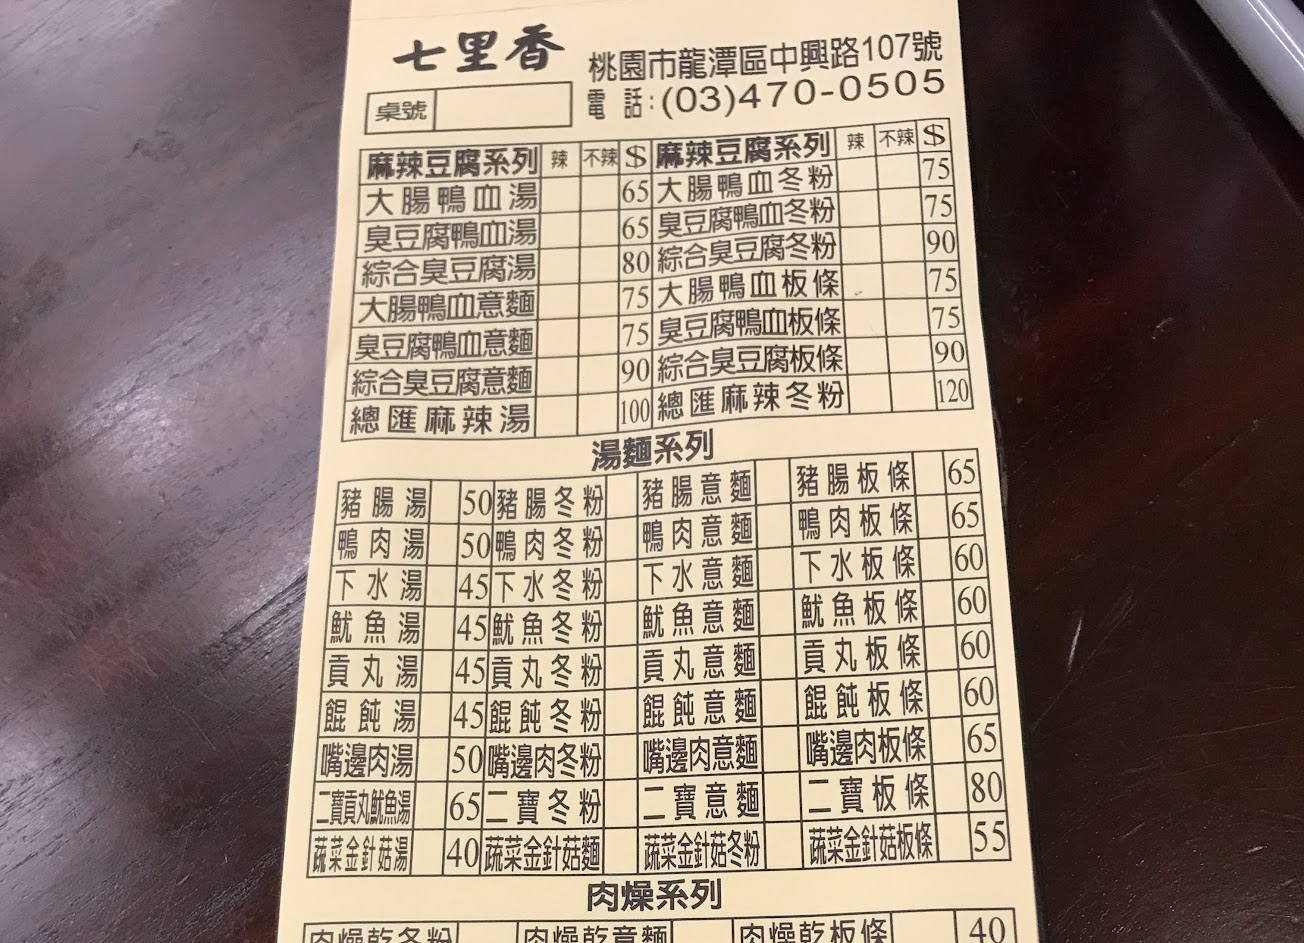 七里香
桃園市龍潭區中興路107號
桌號
電話:(03)470-0505
麻辣豆腐系列 辣 不辣 $ 麻辣豆腐系列 辣 不辣 $
大腸鴨血湯 65 大腸鴨血冬粉 75
臭豆腐鴨血湯 65 臭豆腐鴨血冬粉 75
綜合臭豆腐湯 80 綜合臭豆腐冬粉 90
大腸鴨血意麵 75 大腸鴨血板條 75
臭豆腐鴨血意麵 75 臭豆腐鴨血板條 75
綜合臭豆腐意麵 90 綜合臭豆腐板條 90
總匯麻辣湯 100 總匯麻辣冬粉 120
湯麵系列
豬腸湯 50 豬腸冬粉 豬腸意麵 豬腸板條 65
鴨肉湯 50 鴨肉冬粉 鴨肉意麵 鴨肉板條 65
下水湯 45 下水冬粉 下水意麵 下水板條 60
魷魚湯 45 魷魚冬粉 魷魚意麵 魷魚板條 60
貢丸湯 45 貢丸冬粉 貢丸意麵 貢丸板條 60
餛飩湯 45 餛飩冬粉 餛飩意麵 餛飩板條 60
嘴邊肉湯 50 嘴邊肉冬粉 嘴邊肉意麵 嘴邊肉板條 65
二寶貢丸魷魚湯 65 二寶冬粉 二寶意麵 二寶板條 80
蔬菜金針菇湯 40 蔬菜金針菇麵 蔬菜金針菇冬粉 蔬菜金針菇板條 55
肉燥系列
肉燥乾冬粉 肉燥乾意麵 肉燥乾板條 40